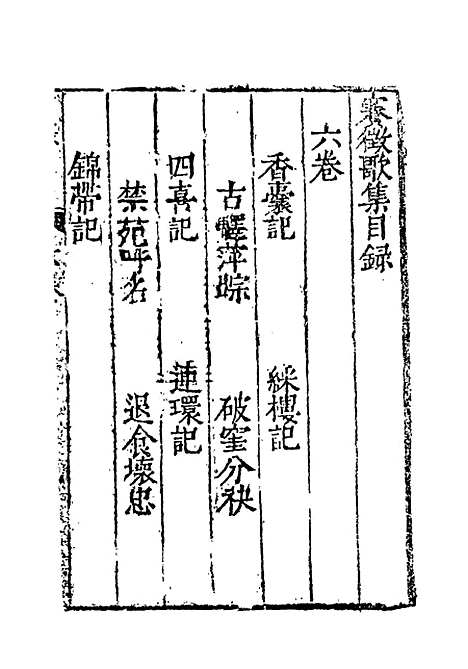 賽徵歌集目録
六卷
香囊記　綵樓記
古驛萍踪　破窑分袂
四喜記　連環記
禁苑呼名　退食懷忠
錦帶記